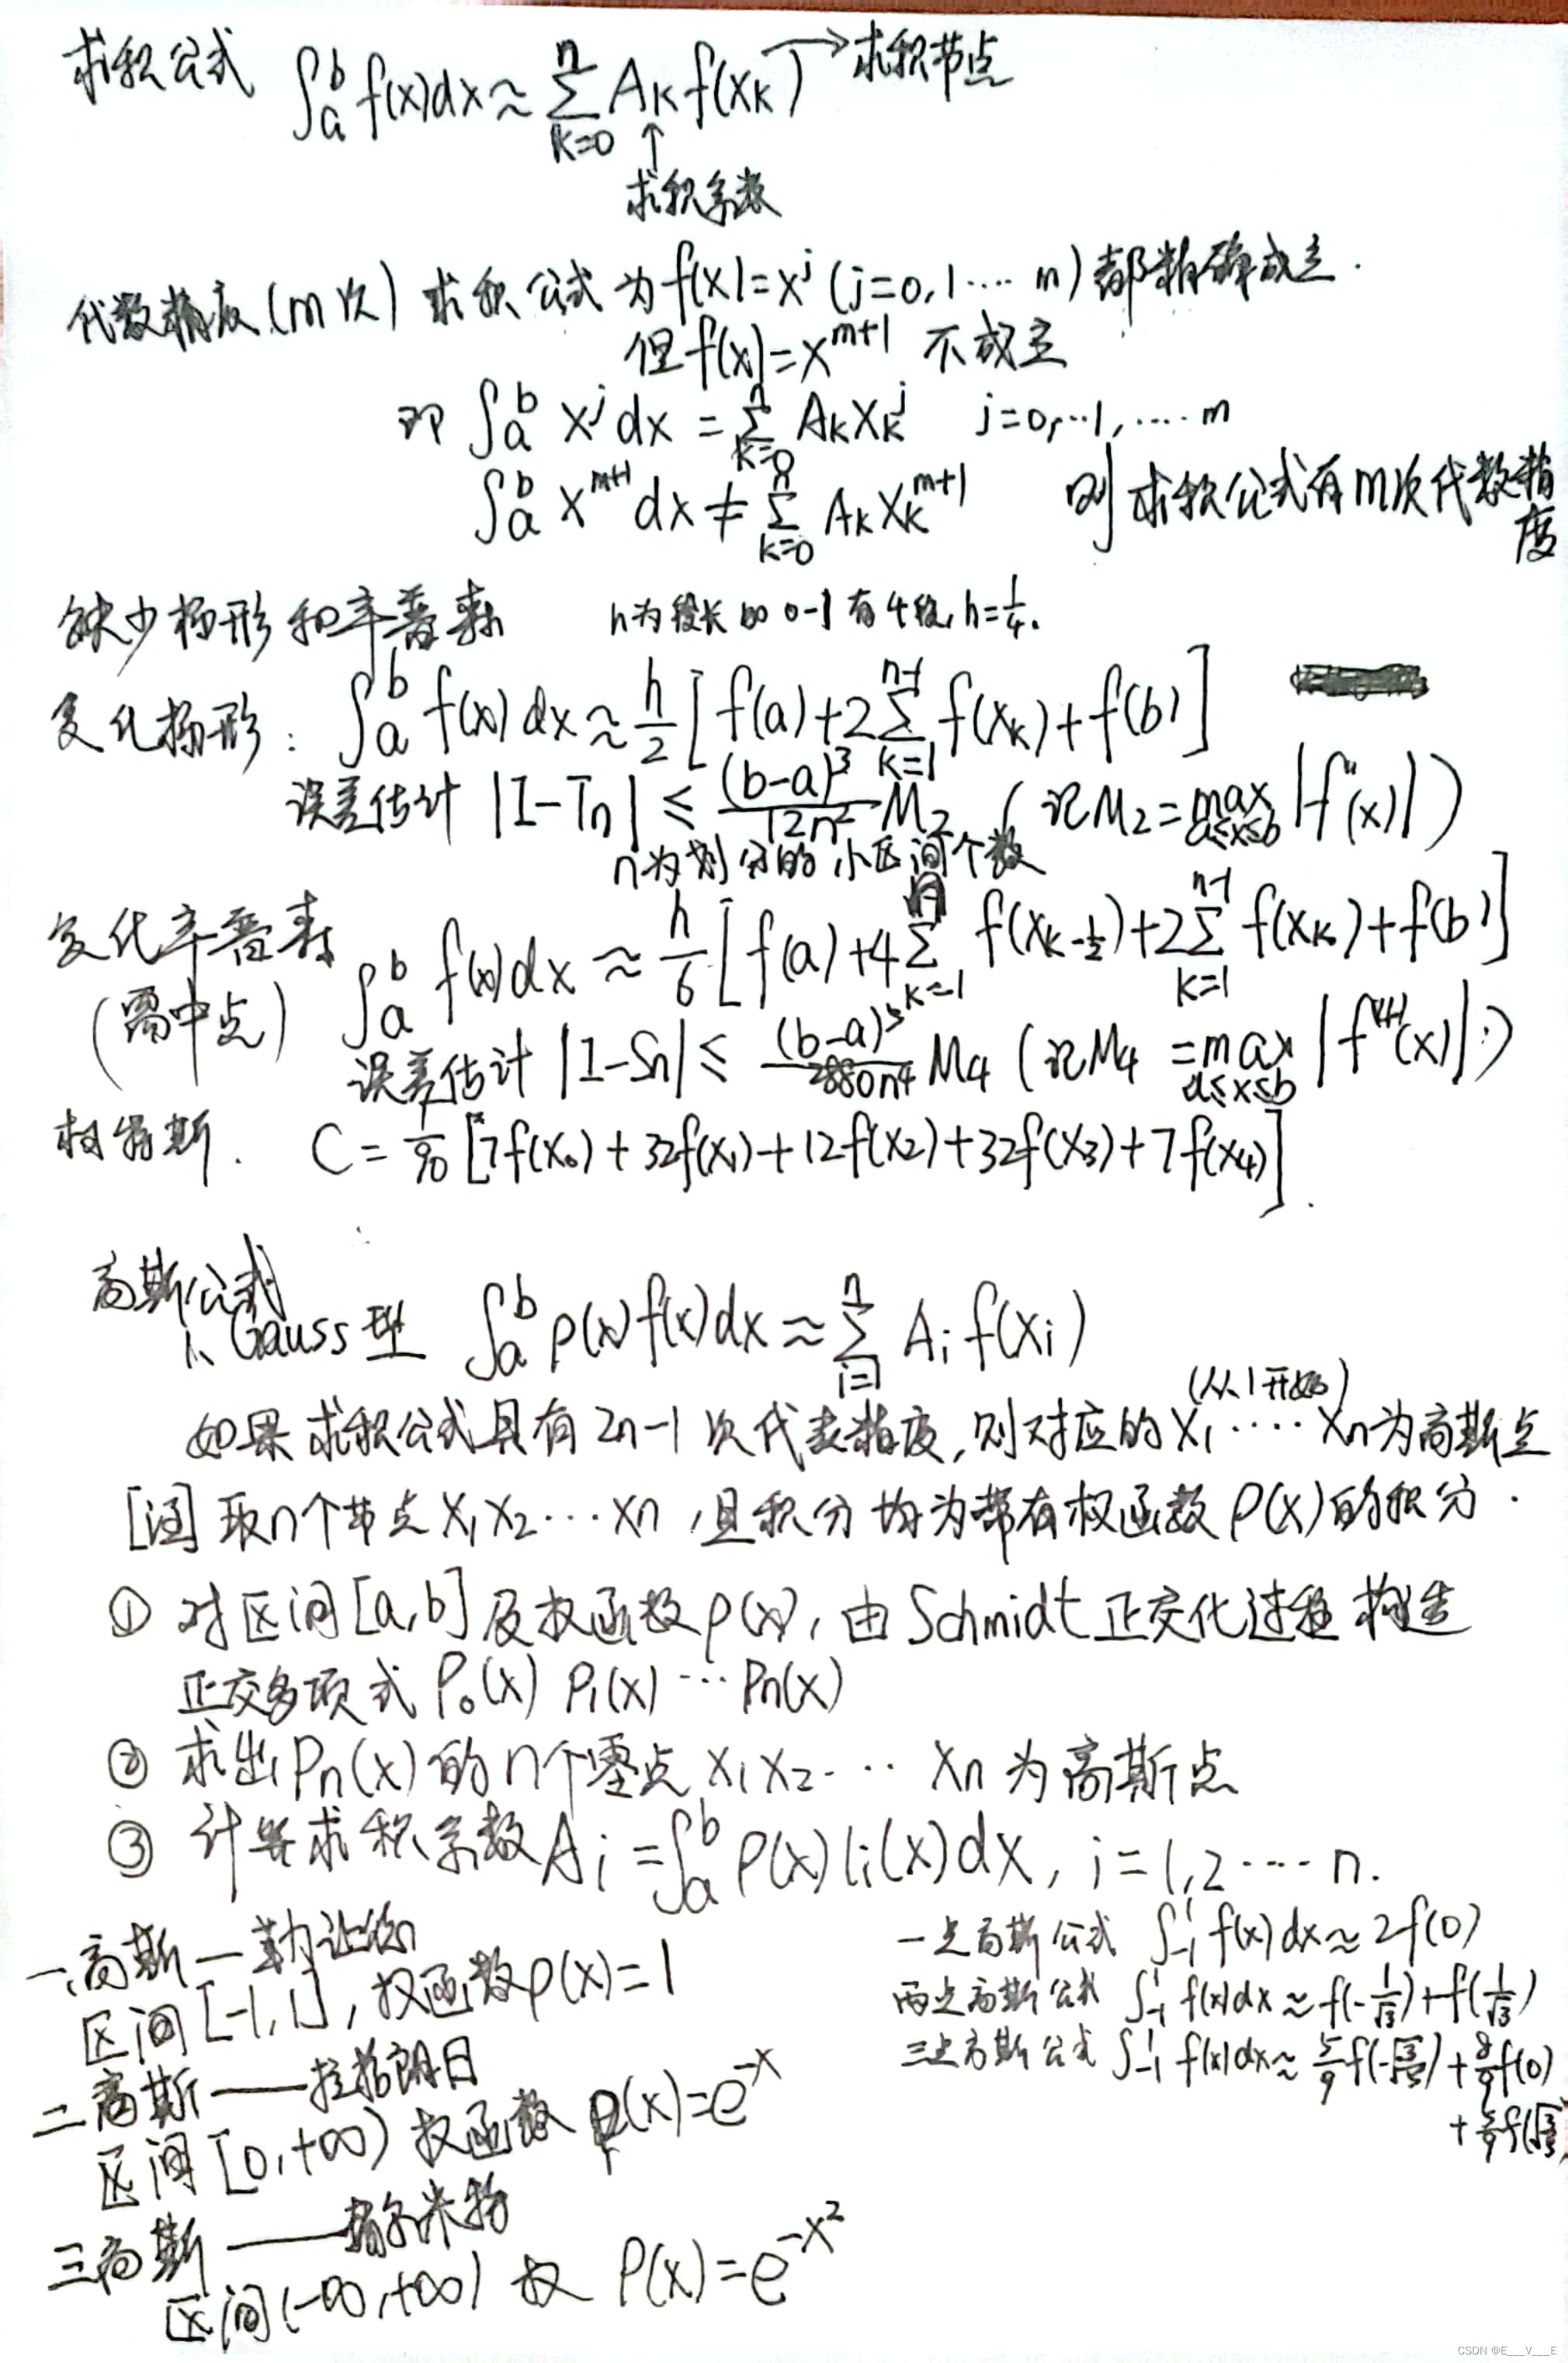 求积公式 ∫_a^b f(x)dx ≈ ∑_{k=0}^n A_k f(x_k) → 求积节点
↑
求积系数
代数精度(m次) 求积公式为f(x)=x^j (j=0,1…… m)都精确成立.
但f(x)=x^{m+1} 不成立
即 ∫_a^b x^j dx = ∑_{k=0}^n A_k x_k^j j=0,…1,…… m
∫_a^b x^{m+1} dx ≠ ∑_{k=0}^n A_k x_k^{m+1} 则求积公式有m次代数精度
缺少梯形和辛普森 h为段长 如 0-1有4段, h=1/4.
复化梯形: ∫_a^b f(x)dx ≈ h/2 [f(a)+2∑_{k=1}^{n-1} f(x_k)+f(b)]
误差估计 |I-T_n| ≤ (b-a)^3/12n^2 M_2 (记M_2=max_{a≤x≤b}|f''(x)|)
n为划分的小区间个数
复化辛普森 ∫_a^b f(x)dx ≈ h/6 [f(a)+4∑_{k=1}^n f(x_{k-1/2})+2∑_{k=1}^{n-1} f(x_k)+f(b)]
(需中点)
误差估计 |I-S_n| ≤ (b-a)^5/2880n^4 M_4 (记M_4=max_{a≤x≤b}|f^{(4)}(x)|)
柯特斯. C=1/90 [7f(x_0)+32f(x_1)+12f(x_2)+32f(x_3)+7f(x_4)]
高斯公式
1、Gauss型 ∫_a^b ρ(x)f(x)dx ≈ ∑_{i=1}^n A_i f(x_i)
(从1开始)
如果求积公式具有2n-1次代数精度,则对应的x_1……x_n为高斯点
[注] 取n个节点x_1x_2…x_n,且积分均为带有权函数ρ(x)的积分.
① 对区间[a,b]及权函数ρ(x),由Schmidt正交化过程构造
正交多项式P_0(x) P_1(x)…P_n(x)
② 求出P_n(x)的n个零点x_1x_2…x_n为高斯点
③ 计算求积系数A_i=∫_a^b ρ(x)l_i(x)dx, i=1,2…… n.
一、高斯一勒让德
区间[-1,1],权函数ρ(x)=1
二高斯——拉格朗日
区间[0,+∞)权函数ρ(x)=e^{-x}
三高斯——埃尔米特
区间(-∞,+∞)权 ρ(x)=e^{-x^2}
一点高斯公式 ∫_{-1}^1 f(x)dx≈2f(0)
两点高斯公式 ∫_{-1}^1 f(x)dx≈f(-1/√3)+f(1/√3)
三点高斯公式 ∫_{-1}^1 f(x)dx≈5/9 f(-√(3/5))+8/9 f(0)
+5/9 f(√(3/5)
CSDN @E___V___E